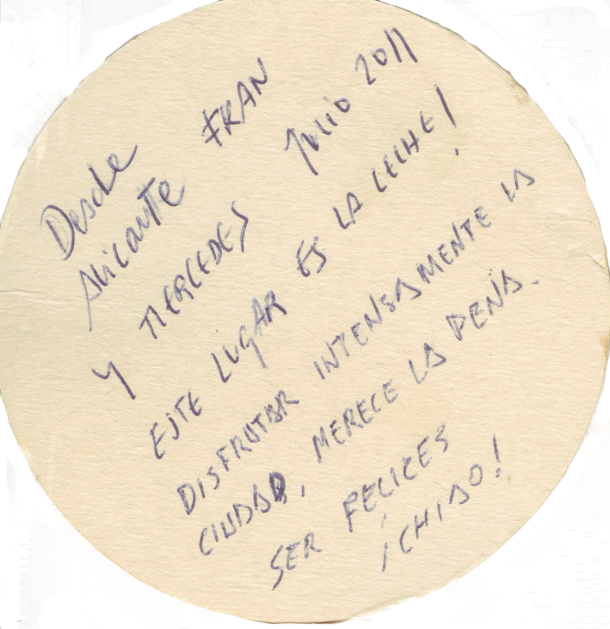 Desde FRAN
Alicante Julio 2011
Y MERCEDES
ESTE LUGAR ES LA LECHE!
DISFRUTAR INTENSAMENTE LA
CIUDAD, MERECE LA PENA.
SER FELICES
¡CHIAO!